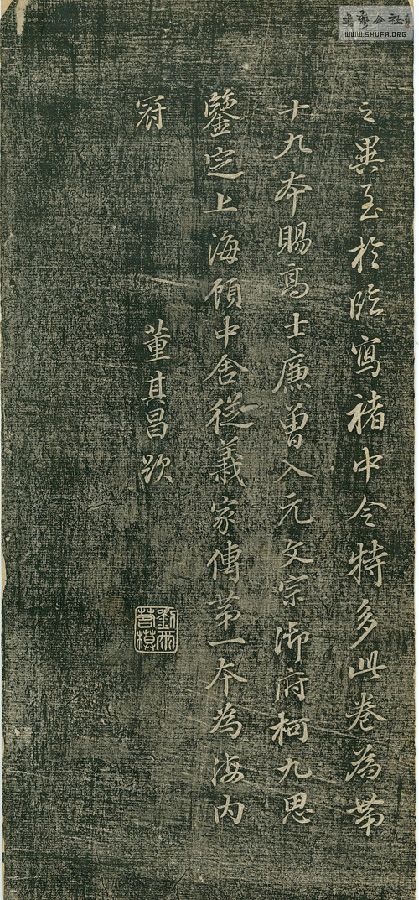 WWW.SHUFA.ORG
之異至於臨寫褚中令特多此卷為第
十九本賜高士廉曾入元文宗御府柯九思
鑒定上海顧中舍從義家傳第一本為海内
冠
董其昌跋